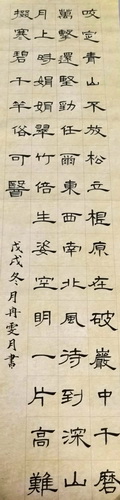 咬定青山不放松立根原在破巖中千磨
萬擊還堅勁任爾東西南北風待到深山
月上時娟娟翠竹倍生姿空明一片高難
掇寒碧千竿俗可醫
戊戌冬月冉雯月書